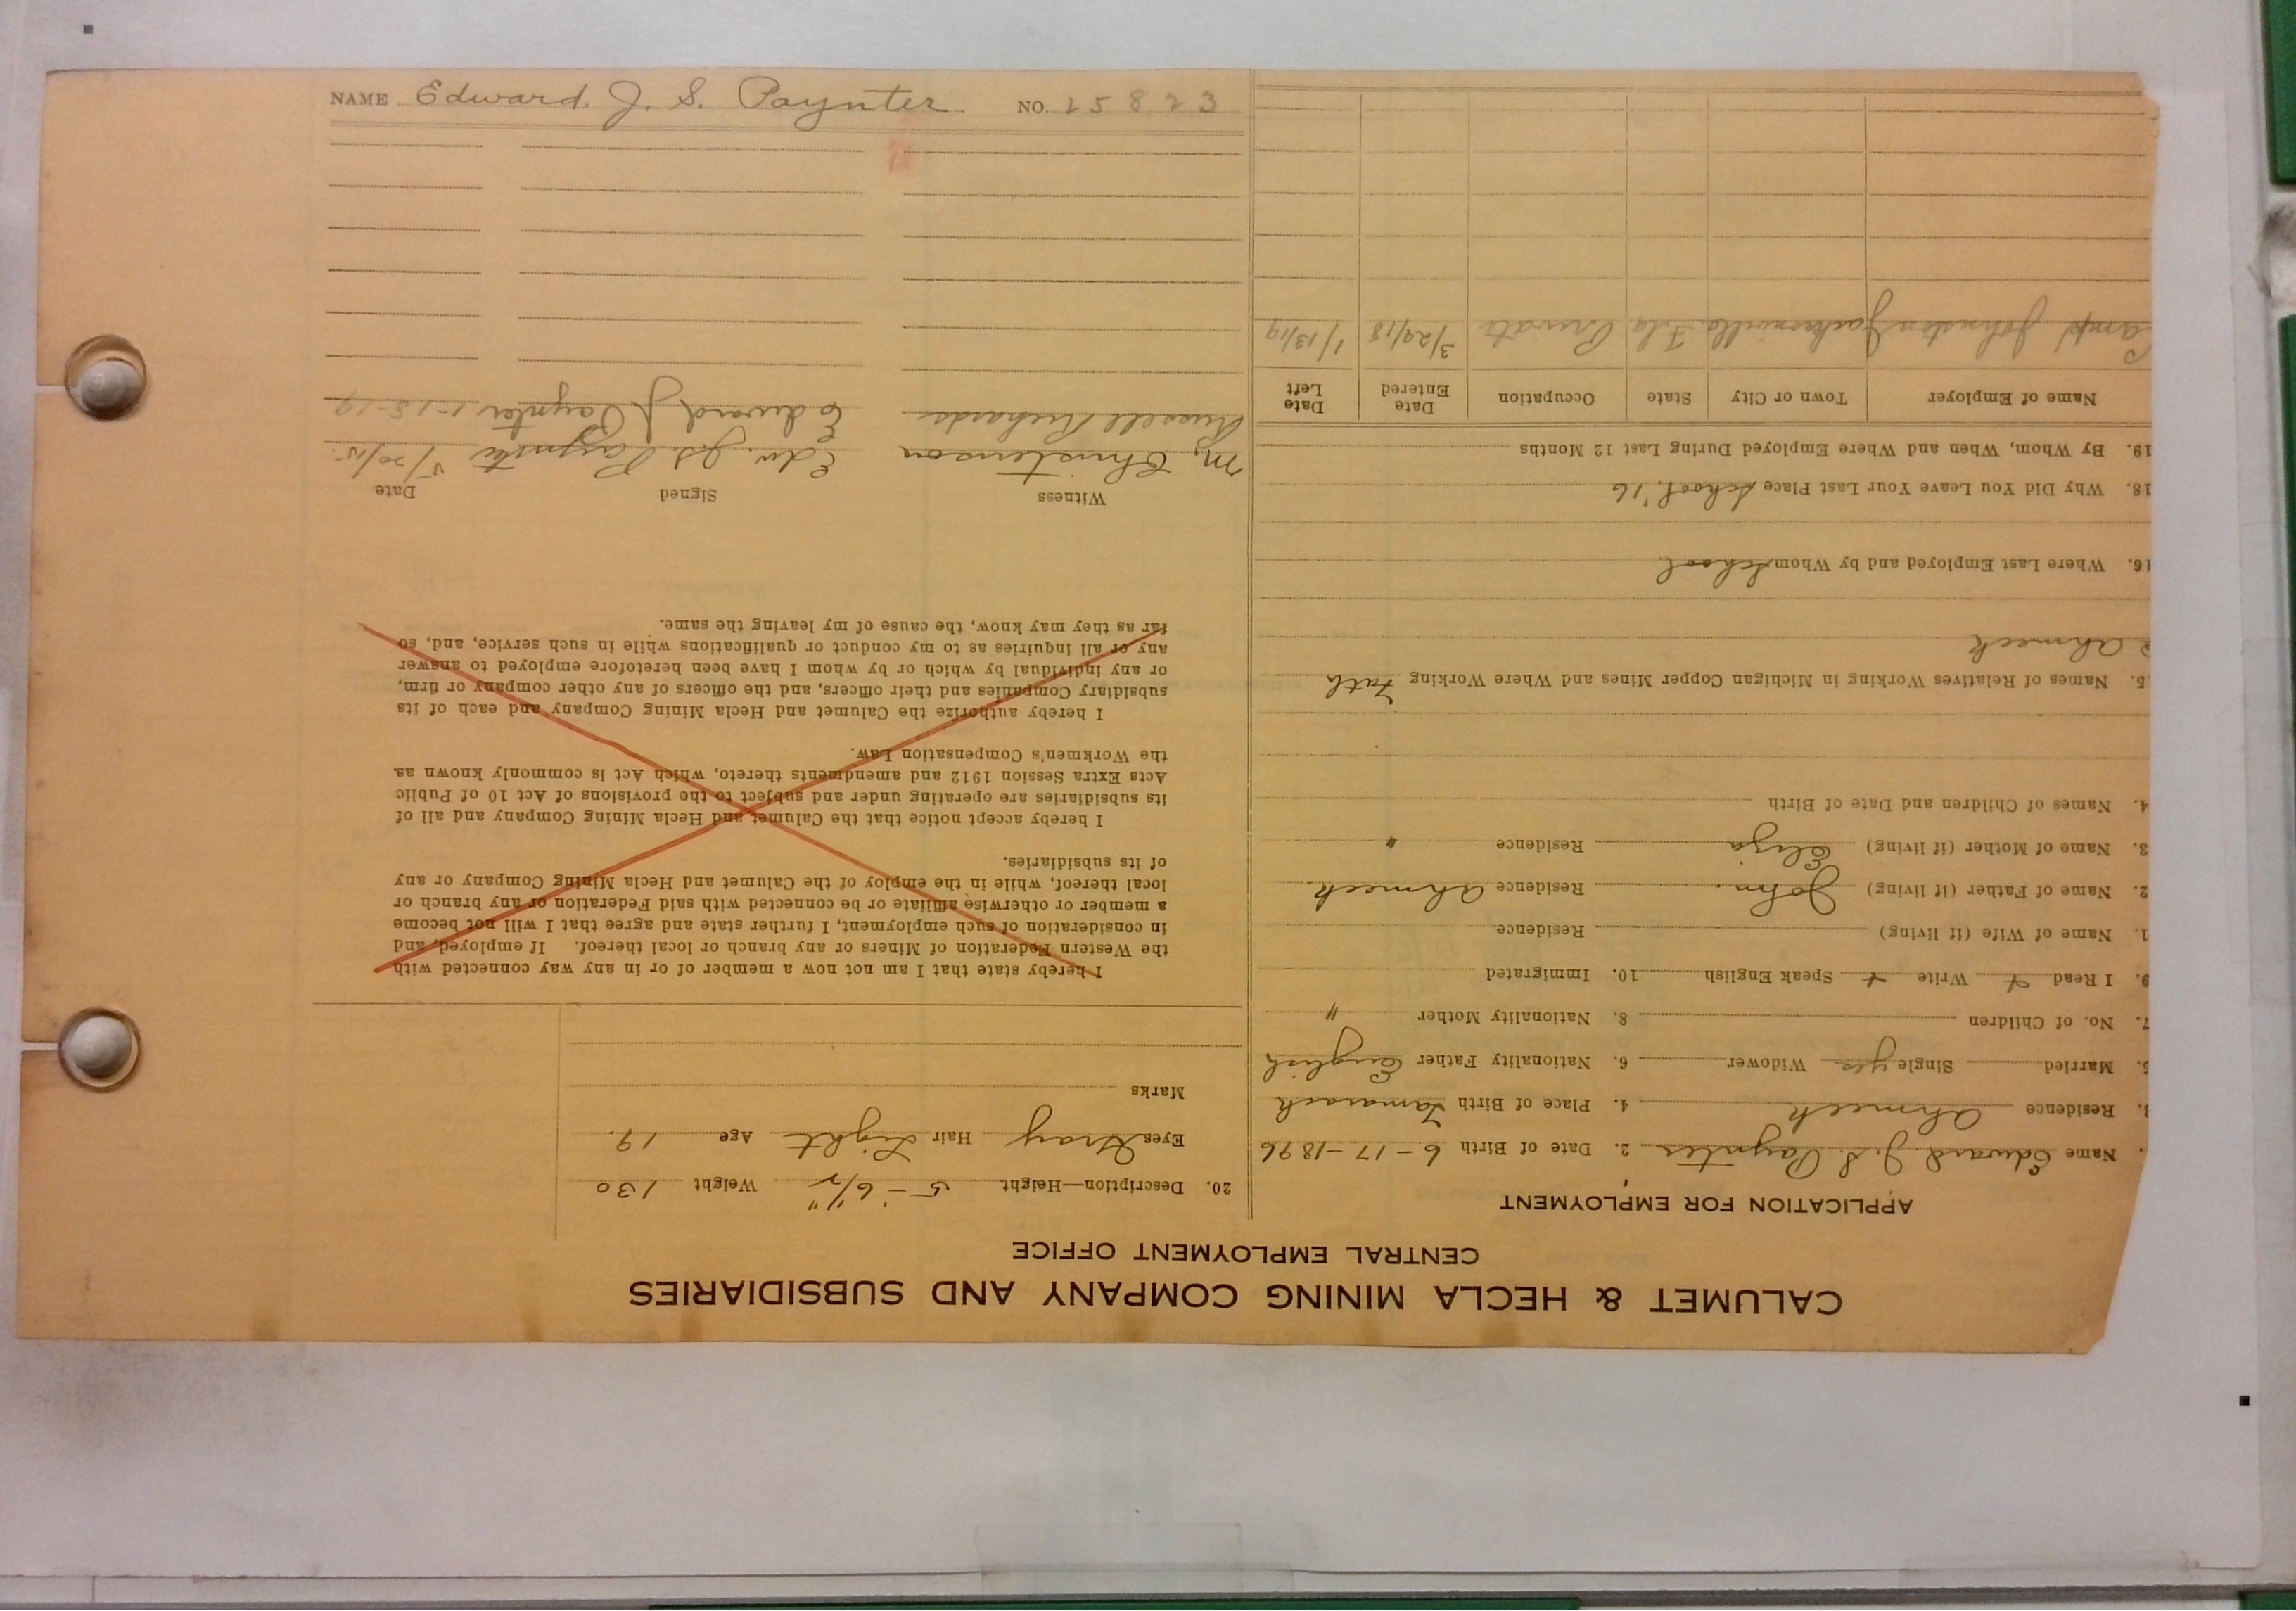 NAME Edward. J. S. Paynter NO. 25823
CALUMET & HECLA MINING COMPANY AND SUBSIDIARIES
CENTRAL EMPLOYMENT OFFICE
APPLICATION FOR EMPLOYMENT
Name Edward J. S. Paynter 2. Date of Birth 6-17-1896
3. Residence Ahmeek 4. Place of Birth Tamarack
5. Married Single yes Widower 6. Nationality Father English
7. No. of Children 8. Nationality Mother "
9. I Read + Write + Speak English 10. Immigrated
1. Name of Wife (if living) Residence
2. Name of Father (if living) John. Residence Ahmeek
3. Name of Mother (if living) Eliza Residence "
4. Names of Children and Date of Birth
5. Names of Relatives Working in Michigan Copper Mines and Where Working Fath
Ahmeek
16. Where Last Employed and by Whom School
18. Why Did You Leave Your Last Place School. '16
19. By Whom, When and Where Employed During Last 12 Months
Name of Employer Town or City State Occupation Date Entered Date Left
Camp Johnston Jacksonville Fla Private 3/29/18 1/13/19
20. Description—Height 5 - 6 1/2" Weight 130
Eyes Gray Hair Light Age 19
Marks
I hereby state that I am not now a member of or in any way connected with
the Western Federation of Miners or any branch or local thereof. If employed, and
in consideration of such employment, I further state and agree that I will not become
a member or otherwise affiliate or be connected with said Federation or any branch or
local thereof, while in the employ of the Calumet and Hecla Mining Company or any
of its subsidiaries.
I hereby accept notice that the Calumet and Hecla Mining Company and all of
its subsidiaries are operating under and subject to the provisions of Act 10 of Public
Acts Extra Session 1912 and amendments thereto, which Act is commonly known as
the Workmen's Compensation Law.
I hereby authorize the Calumet and Hecla Mining Company and each of its
subsidiary Companies and their officers, and the officers of any other company or firm,
or any individual by which or by whom I have been heretofore employed to answer
any or all inquiries as to my conduct or qualifications while in such service, and, so
far as they may know, the cause of my leaving the same.
Witness Signed Date
M. Christenson Edw. J S Paynter 5/20/15.
Russell Richards Edward J Paynter 1-18-19